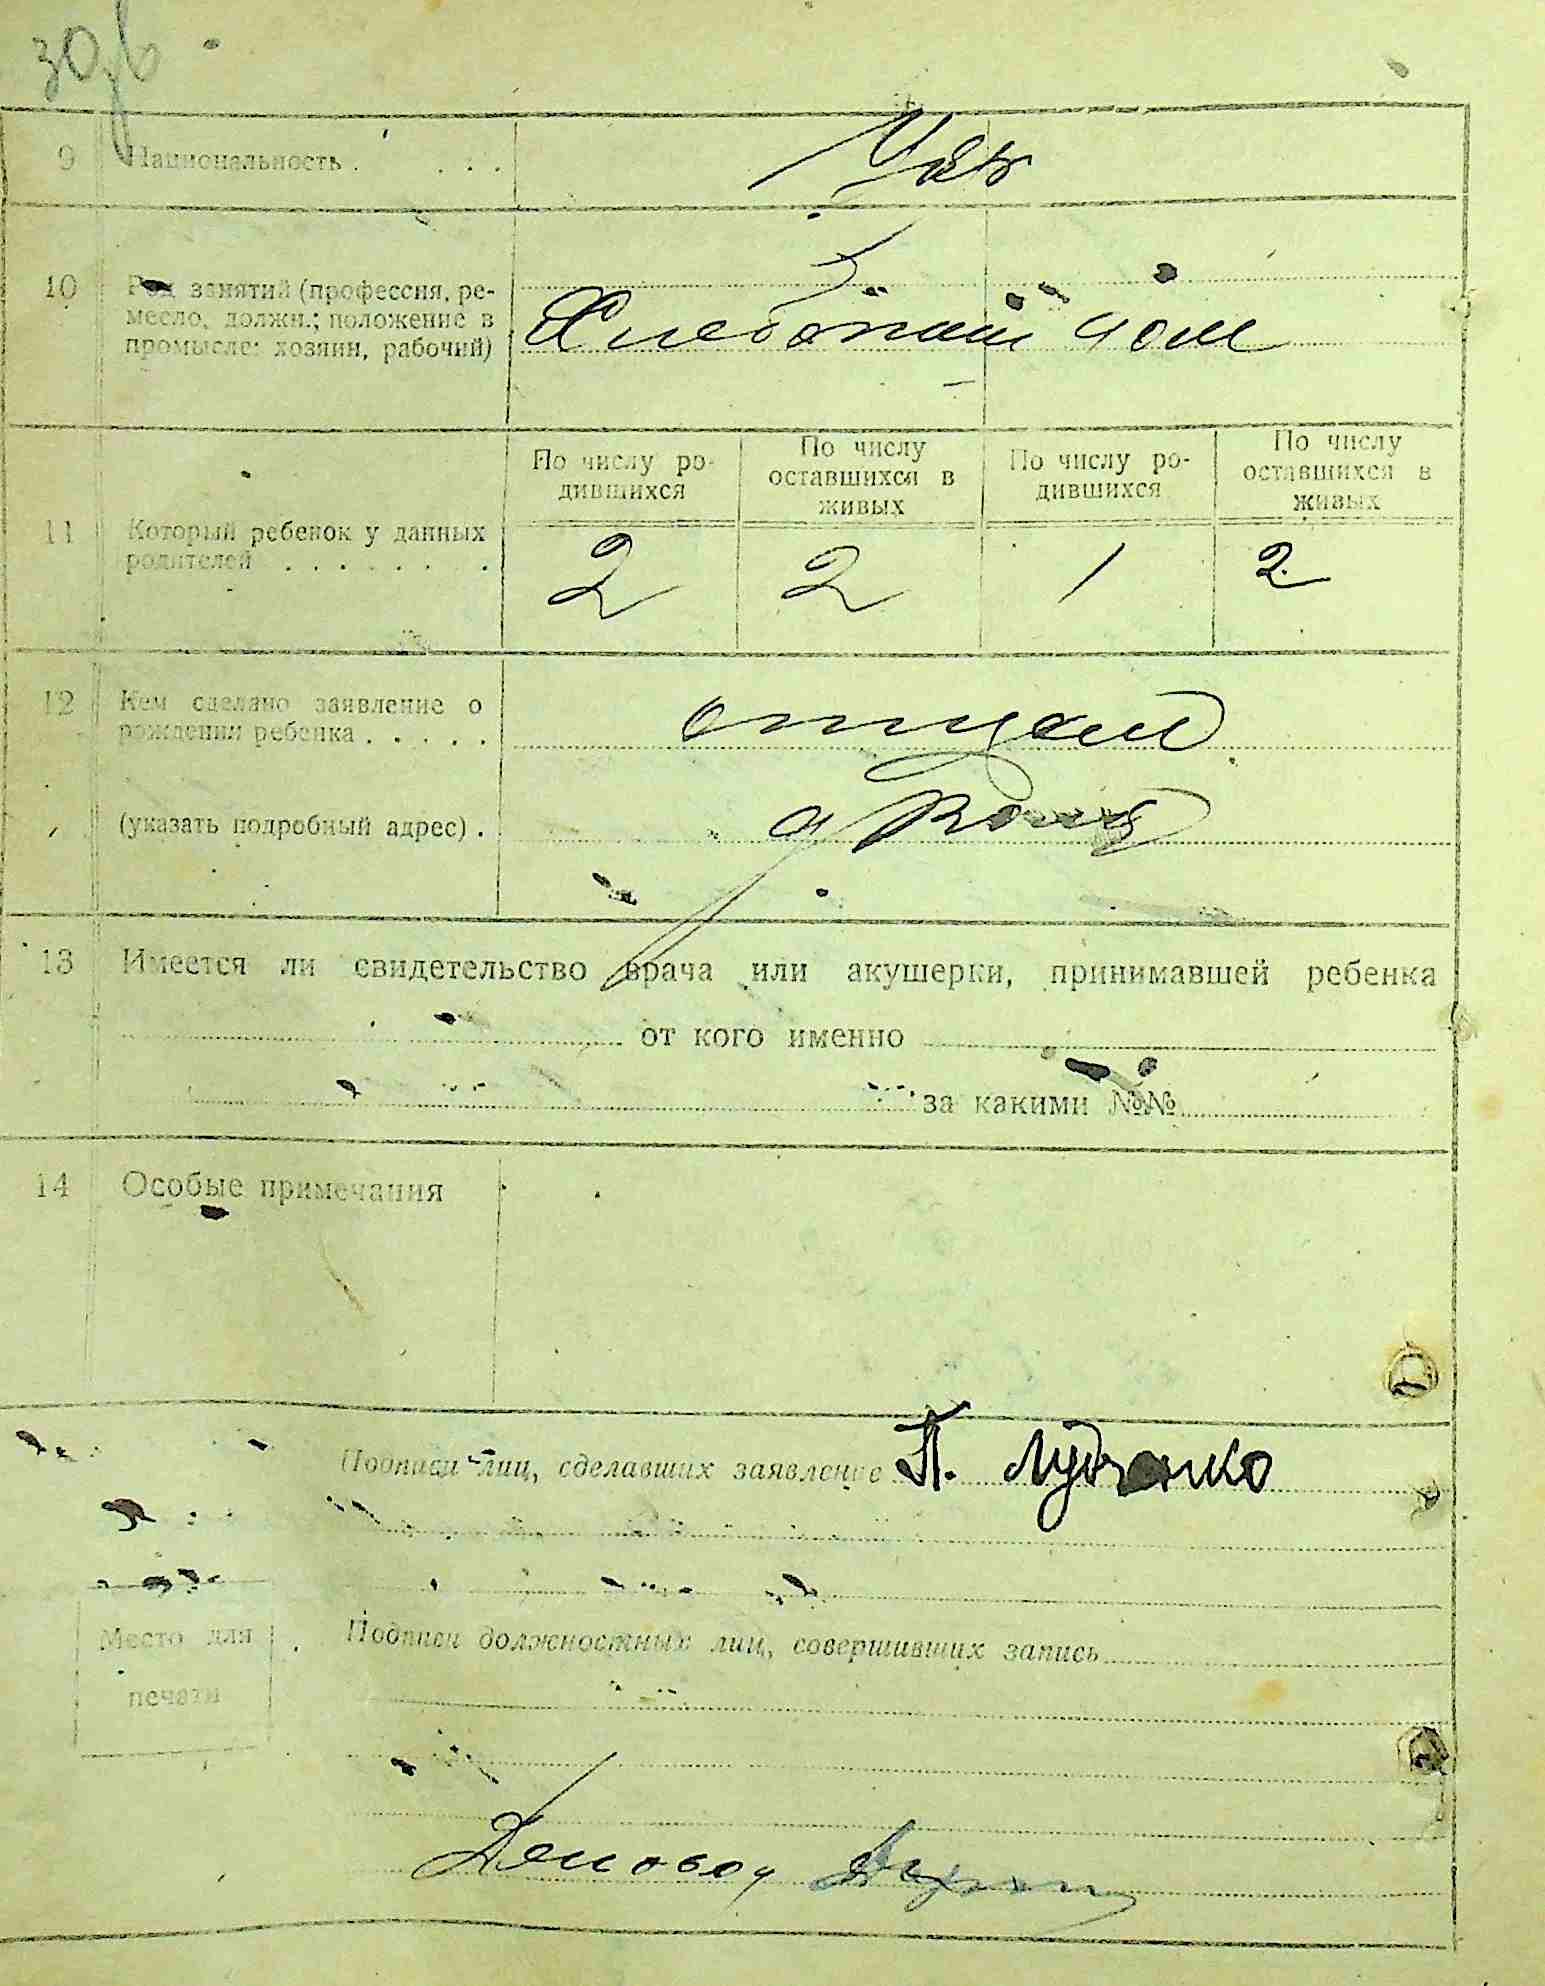 9 Национальность . . . . Укр
10 Род занятий (профессия, ре-
месло, должн.; положение в
промысле: хозяин, рабочий)
По числу ро-
дившихся
По числу
оставшихся в
живых
По числу ро-
дившихся
По числу
оставшихся в
живых
11 Который ребенок у данных
родителей . . . . . . . 2 2 1 2
12 Кем сделано заявление о
рождении ребенка . . . . . отцом
(указать подробный адрес) .
13 Имеется ли свидетельство врача или акушерки, принимавшей ребенка
от кого именно
за какими №№
14 Особые примечания
Подписи лиц, сделавших заявление П. Лудченко
Место для
печати
Подписи должностных лиц, совершивших запись